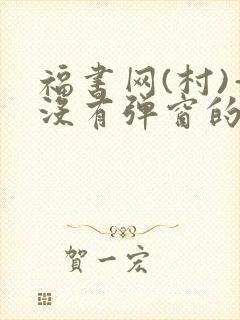 福书网(村)-
没有弹窗的
賀一宏